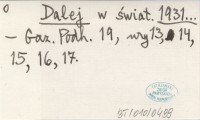 o Dalej w świat. 1931...
— Gaz. Podh. 19, nry 13, 14,
15, 16, 17.
ST/010/0489